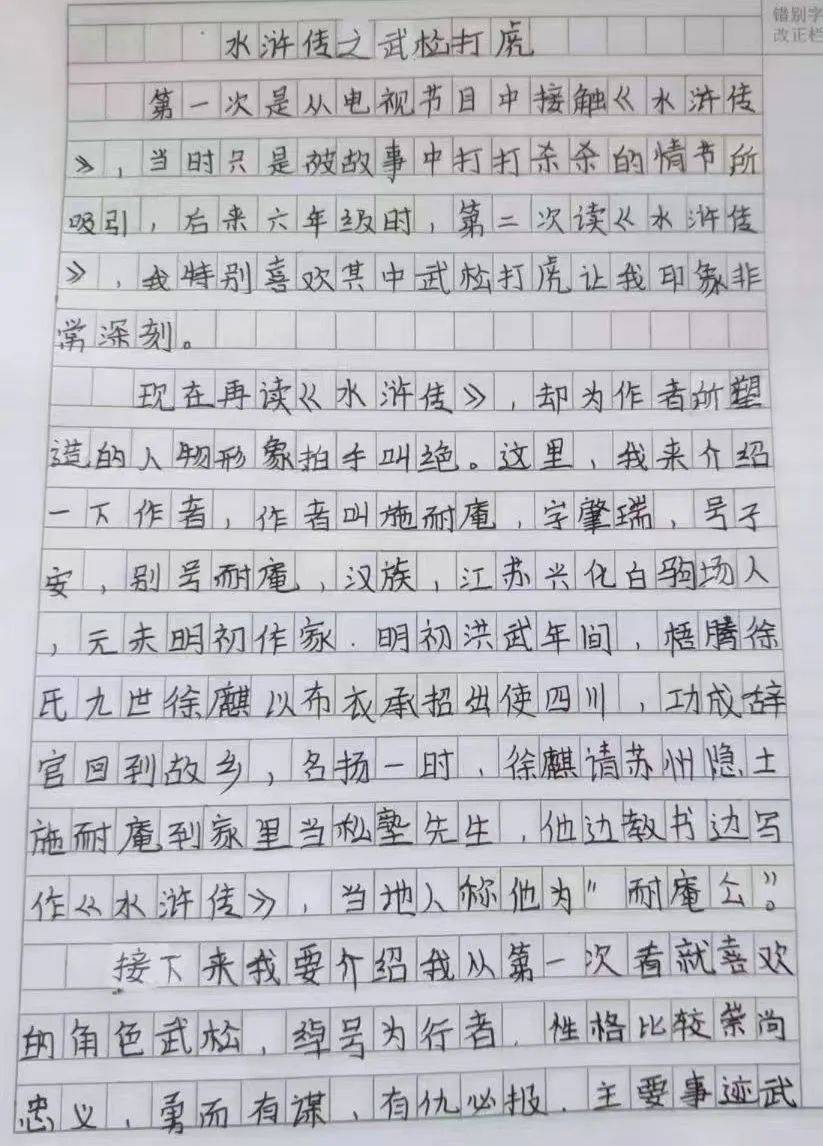 错别字
改正栏
水浒传之武松打虎
第一次是从电视节目中接触《水浒传
》，当时只是被故事中打打杀杀的情节所
吸引，后来六年级时，第二次读《水浒传
》，我特别喜欢其中武松打虎让我印象非
常深刻。
现在再读《水浒传》，却为作者所塑
造的人物形象拍手叫绝。这里，我来介绍
一下作者，作者叫施耐庵，字肇瑞，号子
安，别号耐庵，汉族，江苏兴化白驹场人
，元末明初作家．明初洪武年间，梧塍徐
氏九世徐麒以布衣承招出使四川，功成辞
官回到故乡，名扬一时，徐麒请苏州隐士
施耐庵到家里当私塾先生，他边教书边写
作《水浒传》，当地人称他为"耐庵公"。
接下来我要介绍我从第一次看就喜欢
的角色武松，绰号为行者．性格比较崇尚
忠义，勇而有谋，有仇必报．主要事迹武